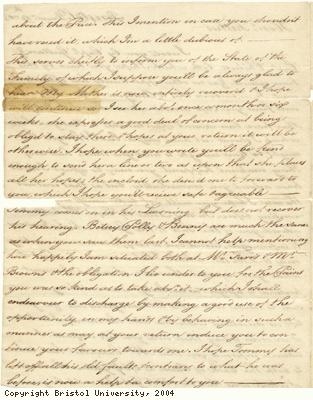 about the Pier this I mention in case you shouldn't
have rec'd it, which I'm a little dubious of
this serves chiefly to inform you of the State of the
Family of which I suppose you'll be always glad to
hear My Mother is now entirely recover'd & I hope
will continue so I see her abt once a month or six
weeks, she expresses a good deal of concern at being
oblig'd to stay there & hopes at your return it will be
otherwise I hope when you write you'll be kind
enough to send her a line or two as upon that she places
all her hopes, the inclos'd she desired me to forward to
you which I hope you'll receive safe & agreeable
Tommy comes on in his Learning but does not recover
his hearing. Betsey Polly & Benny are much the same
as when you saw them last, I cannot help mentioning
how happily I am situated both at Mr. & Mr.
Browns & the obligation I lie under to you for the Pains
you was so kind as to take abt. it which I shall
endeavour to discharge by making a good use of the
opportunity in my hands & by behaving in such a
manner as may at your return induce you to con
tinue your favours towards me. I hope Tommy has
left off all his old faults & contrary to what he was
before is now a help & comfort to you
Copyright Bristol University, 2004